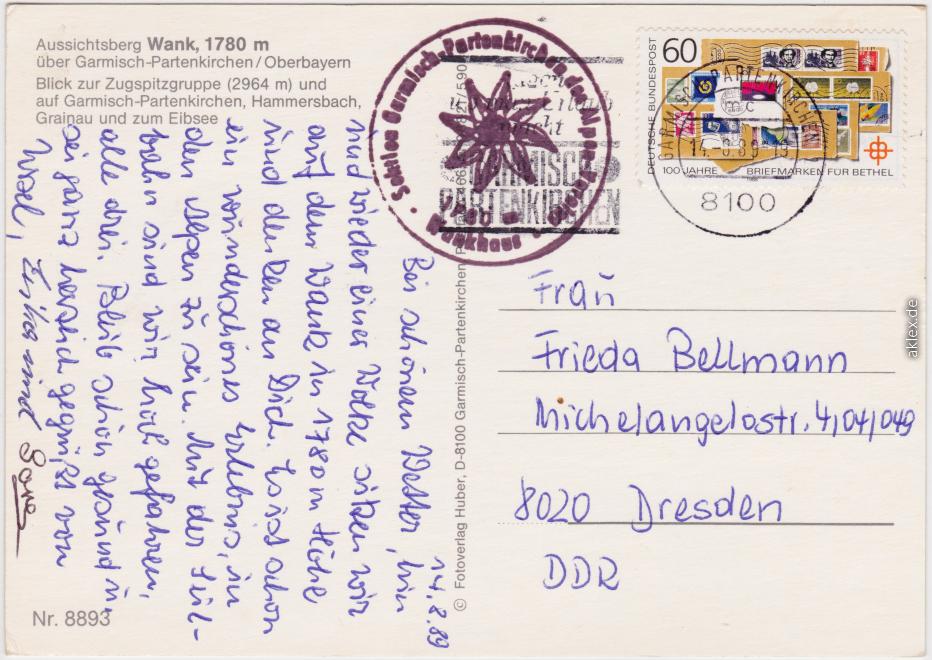 Aussichtsberg Wank, 1780 m
über Garmisch-Partenkirchen/Oberbayern
Blick zur Zugspitzgruppe (2964 m) und
auf Garmisch-Partenkirchen, Hammersbach,
Grainau und zum Eibsee
14.8.89
Bei schönem Wetter, hin
und wieder einer Wolke sitzen wir
auf dem Wank in 1780 m Höhe
und denken an Dich. Es ist schon
ein wunderschönes Erlebnis, in
den Alpen zu sein. Mit der Seil-
bahn sind wir hoch gefahren,
alle drei. Bleib schön gesund u.
sei ganz herzlich gegrüßt von
Ursel,
Erika und
Nr. 8893
© Fotoverlag Huber, D-8100 Garmisch-Partenkirchen
Sektion Garmisch-Partenkirchen des Alpenvereins
Wankhaus
GARMISCH
PARTENKIRCHEN
DEUTSCHE BUNDESPOST
60
100 JAHRE BRIEFMARKEN FÜR BETHEL
GARMISCH-PARTENKIRCHEN
8100
Frau
Frieda Bellmann
Michelangelostr. 4/04/049
8020 Dresden
DDR
aklex.de